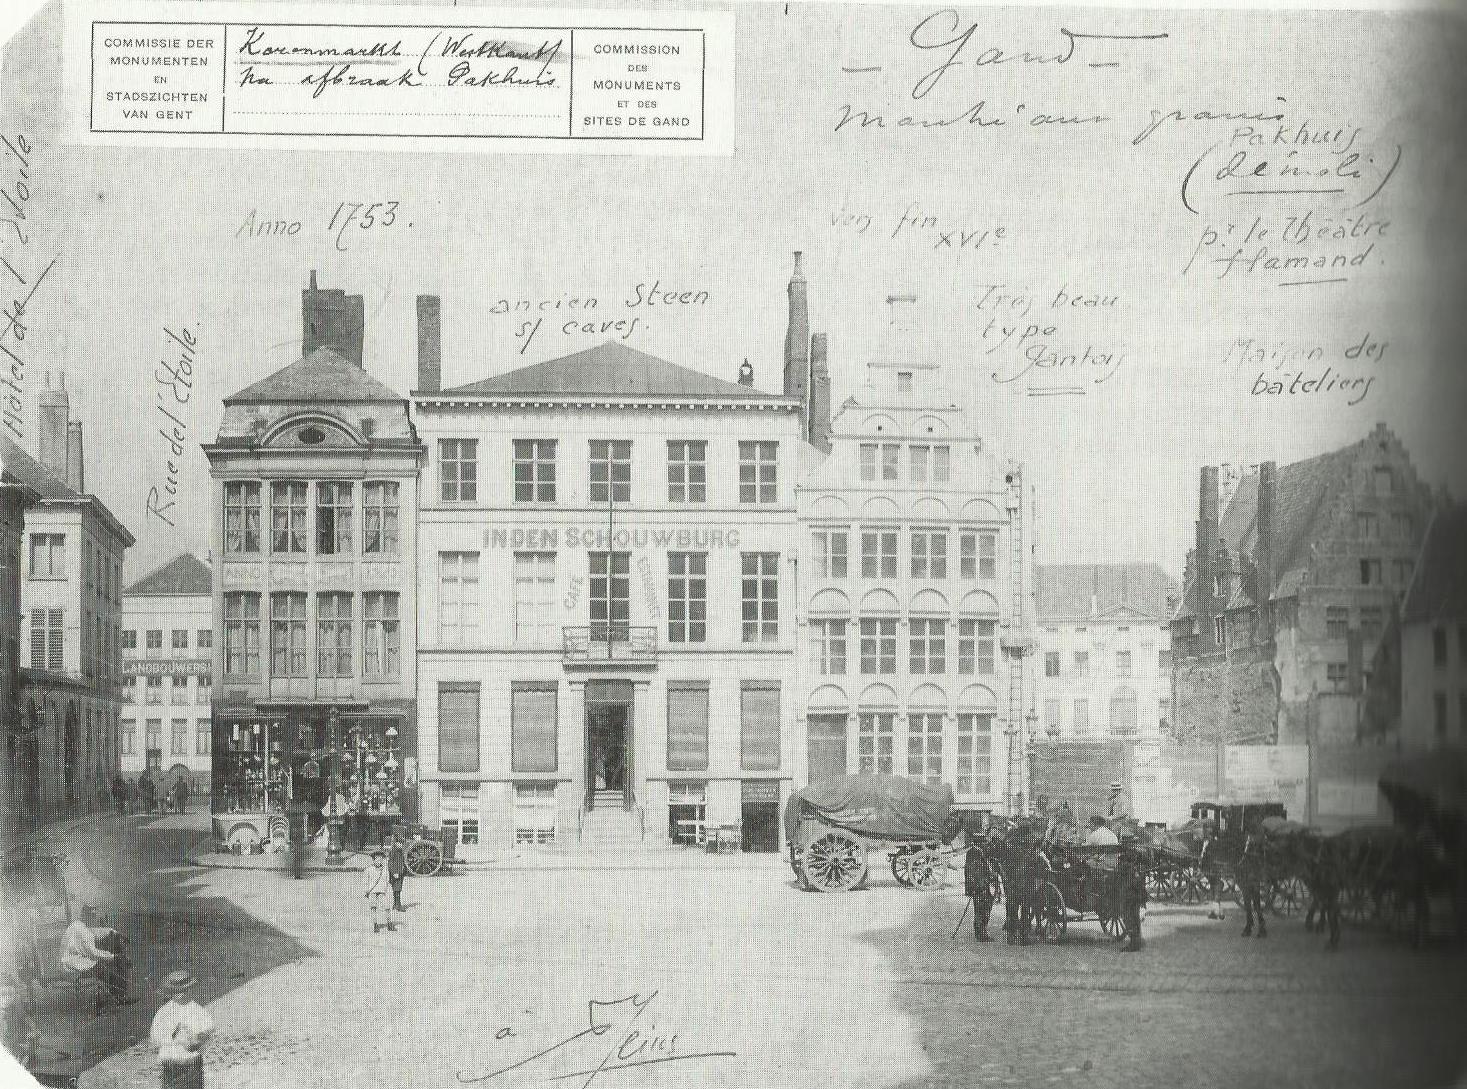 COMMISSIE DER
MONUMENTEN
EN
STADSZICHTEN
VAN GENT
Korenmarkt (Westkant)
na afbraak Pakhuis
COMMISSION
DES
MONUMENTS
ET DES
SITES DE GAND
- Gand -
Marché aux grains
Pakhuis
(démoli)
pr le théâtre
flamand.
Hôtel de l'Etoile
Rue de l'Etoile.
Anno 1753.
ancien Steen
s/ caves.
vers fin
XVIe
Très beau
type
Gantois
Maison des
bâteliers
IN DEN SCHOUWBURG
CAFÉ
ANNO
LANDBOUWERS
a